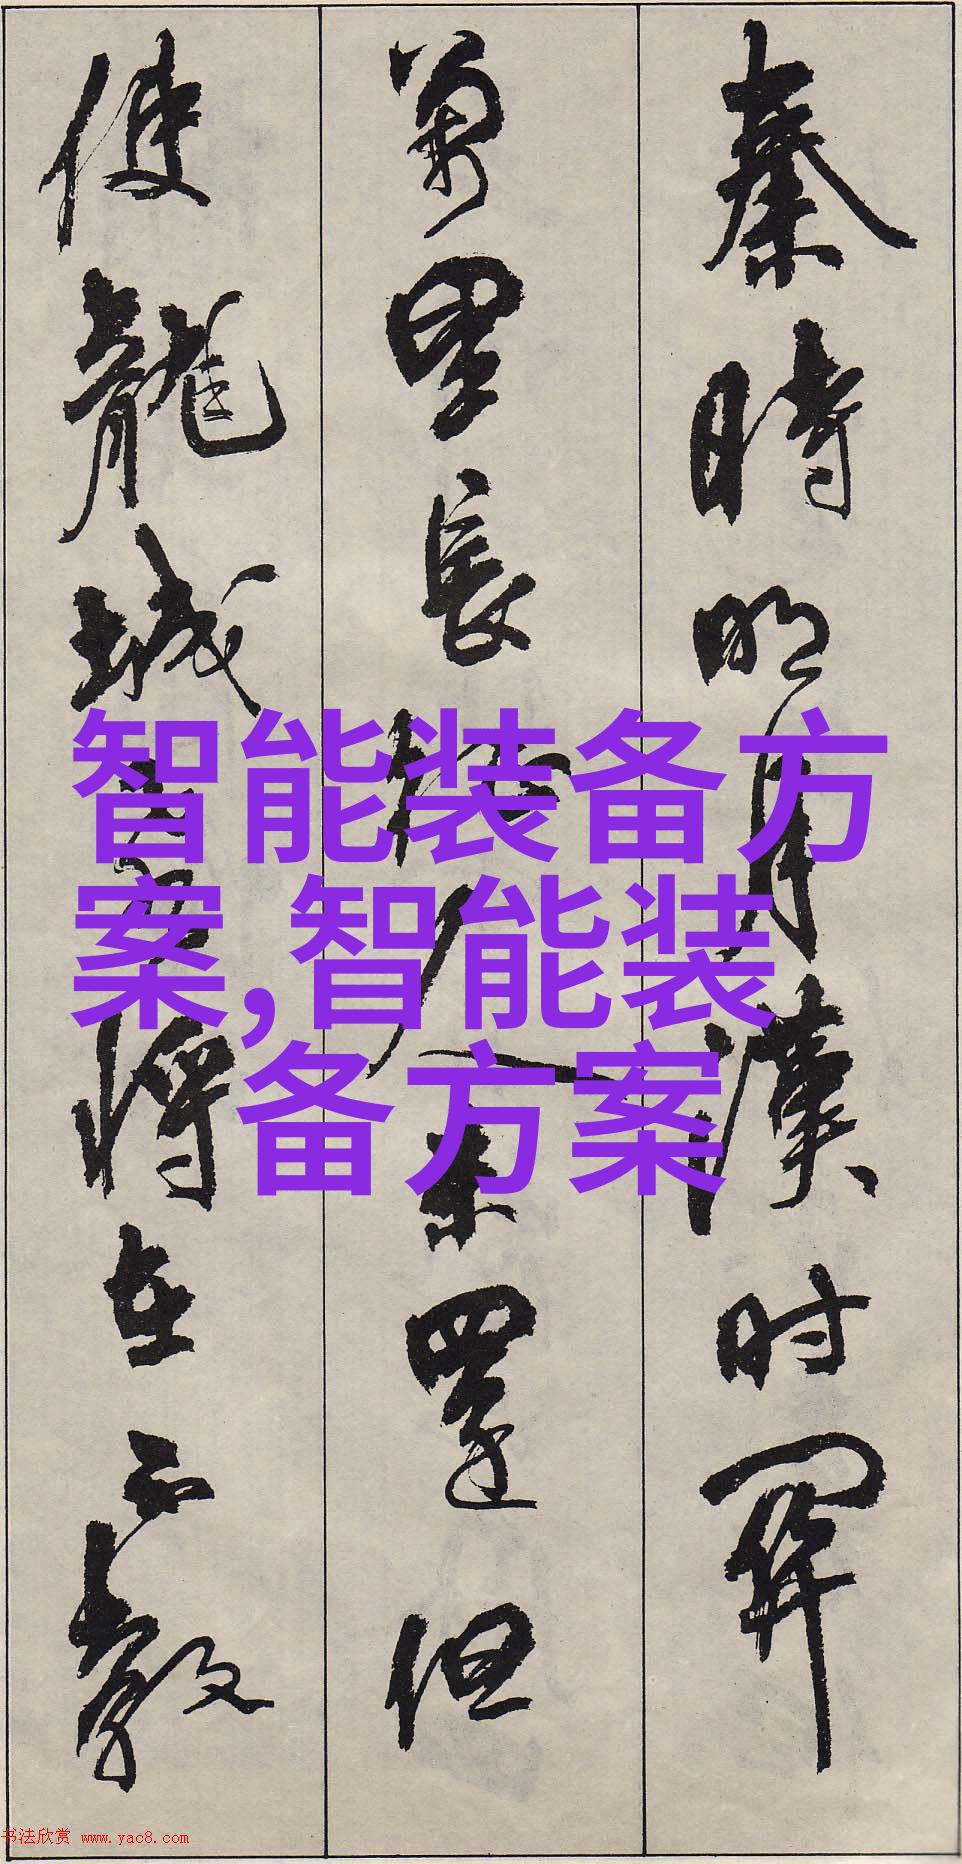 秦時明月漢时關
萬里長征人未還但
使龍城飛將在不教
智能装备方
案,智能装
备方案
书法欣赏 www.yac8.com